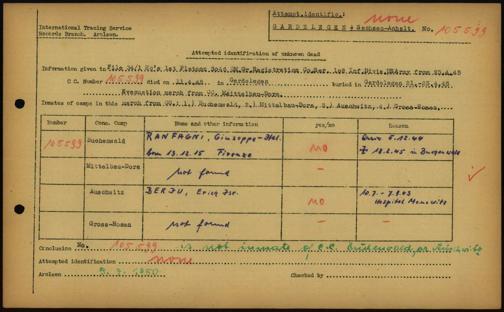 International Tracing Service
Records Branch. Arolsen.
Attempt.identific.: none
GARDELEGEN = Sachsen-Anhalt. No. 105599
Attempted identification of unknown dead
Information given in File 34/1
from 25.4.45
C.C. Number 105599 died on 11.4.45 in Gardelegen buried in Gardelegen
Evacuation march from CC. Mittelbau-Dora.
Inmates of camps in this march from CC.: 1.) Buchenwald, 2.) Mittelbau-Dora, 3.) Auschwitz, 4.) Gross-Rosen.
Number Camp Name and other information yes/no Reason
105599 Buchenwald RANFAGNI, Giuseppe
born 13.12.15 Firenze NO 18.2.45 in
Mittelbau-Dora not found —
Auschwitz BERJU, Erich Isr. NO 10.7.-7.9.43
Hospital Monowitz
Gross-Rosen not found —
Conclusion No. 105599 is not inmate of C.C. Buchenwald, or Auschwitz
Attempted identification none
Arolsen 1950 Checked by